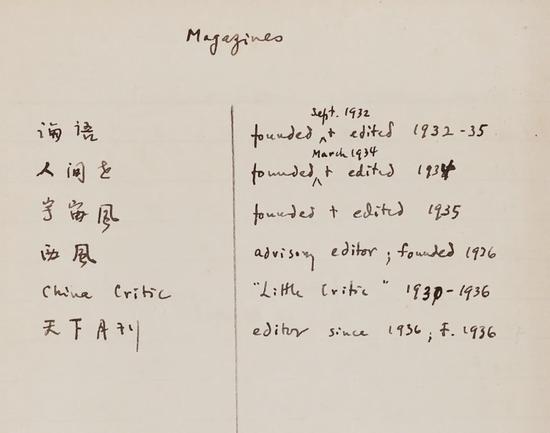 Magazines
論語 founded Sept. 1932 + edited 1932-35
人间世 founded March 1934 + edited 1934
宇宙風 founded + edited 1935
西風 advisory editor; founded 1936
China Critic "Little Critic" 1930-1936
天下月刊 editor since 1936; f. 1936